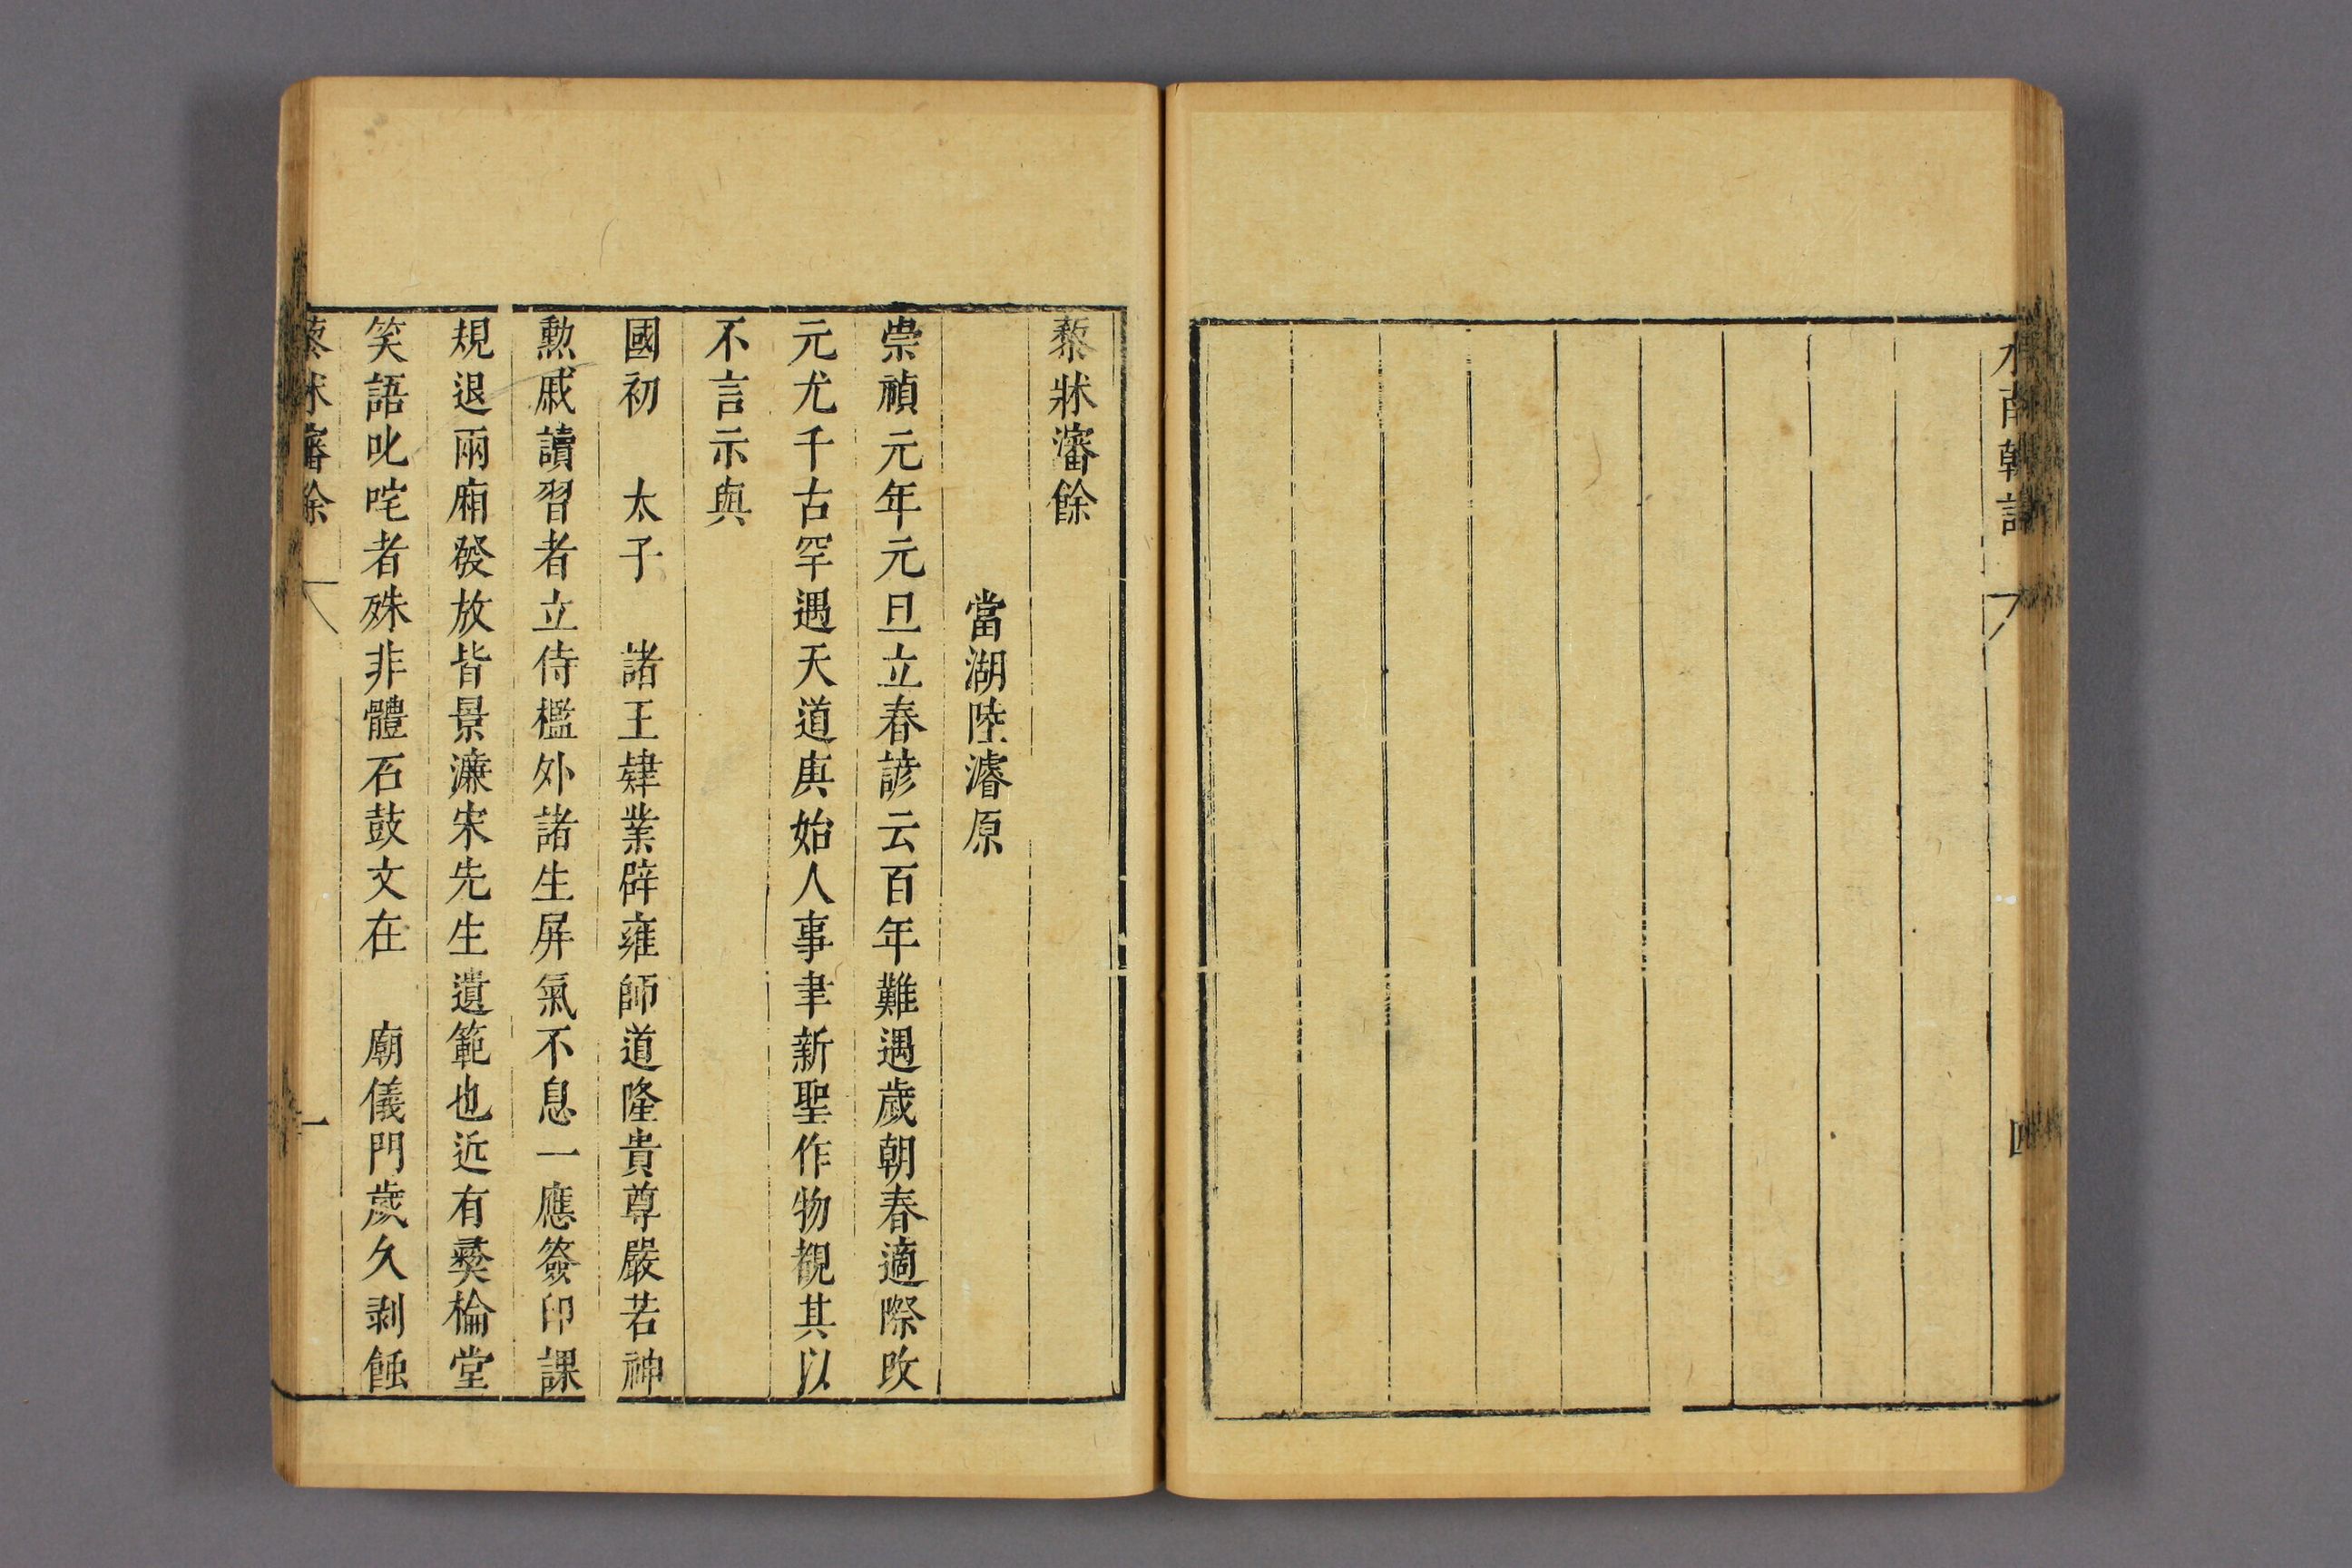 水南翰記
四
藜牀瀋餘
當湖陸濬原
崇禎元年元旦立春諺云百年難遇歲朝春適際攺
元尤千古罕遇天道㪅始人事聿新聖作物覩其以
不言示與
國初　太子　諸王肄業辟雍師道隆貴尊嚴若神
勲戚讀習者立侍檻外諸生屏氣不息一應簽印課
規退兩廂發放皆景濂宋先生遺範也近有彝倫堂
笑語叱咤者殊非體石鼓文在　廟儀門歲久剥蝕
藜牀瀋餘
一